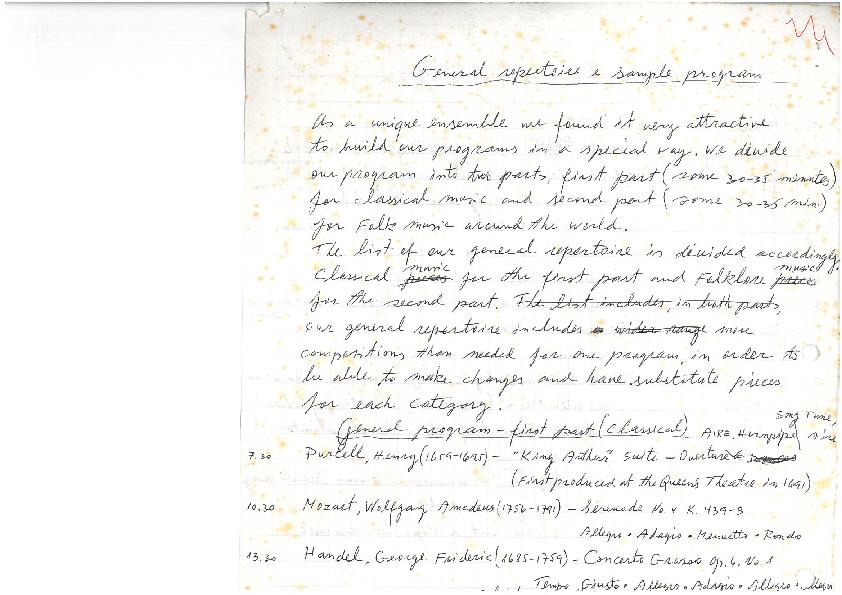 General repertoire & sample program
As a unique ensemble we found it very attractive
to build our programs in a special way. We devide
our program into two parts, first part (some 30-35 minutes)
for classical music and second part (some 30-35 min)
for Folk music around the world.
The list of our general repertoire is devided accordingly.
Classical pieces music for the first part and Folklore music
for the second part. The list includes, in both parts,
our general repertoire includes a wider range more
compositions than needed for one program, in order to
be able to make changes and have substitute pieces
for each category.
General program - first part (Classical) AIRE, Hornpipe, Song Tune,
7.30 Purcell, Henry (1659-1695) - "King Arthur" Suite - Overture
(First produced at the Queen's Theatre in 1691)
10.30 Mozart, Wolfgang Amadeus (1756-1791) - Serenade No. 4 K. 439-B
Allegro • Adagio • Menuetto • Rondo
13.30 Handel, George Frideric (1685-1759) - Concerto Grosso Op. 6, No. 1
Tempo Giusto • Allegro • Adagio • Allegro • Allegro